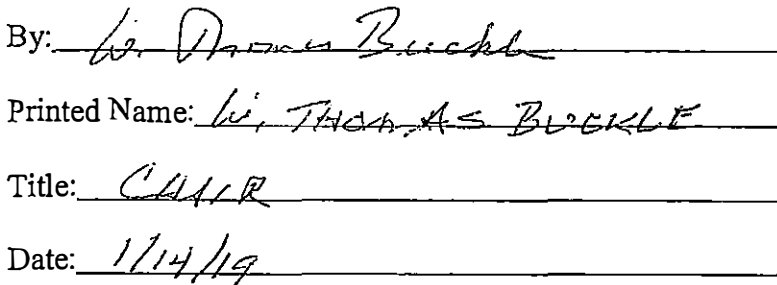 By: W. Thomas Buckle
Printed Name: W. THOMAS BUCKLE
Title: CHAIR
Date: 1/14/19